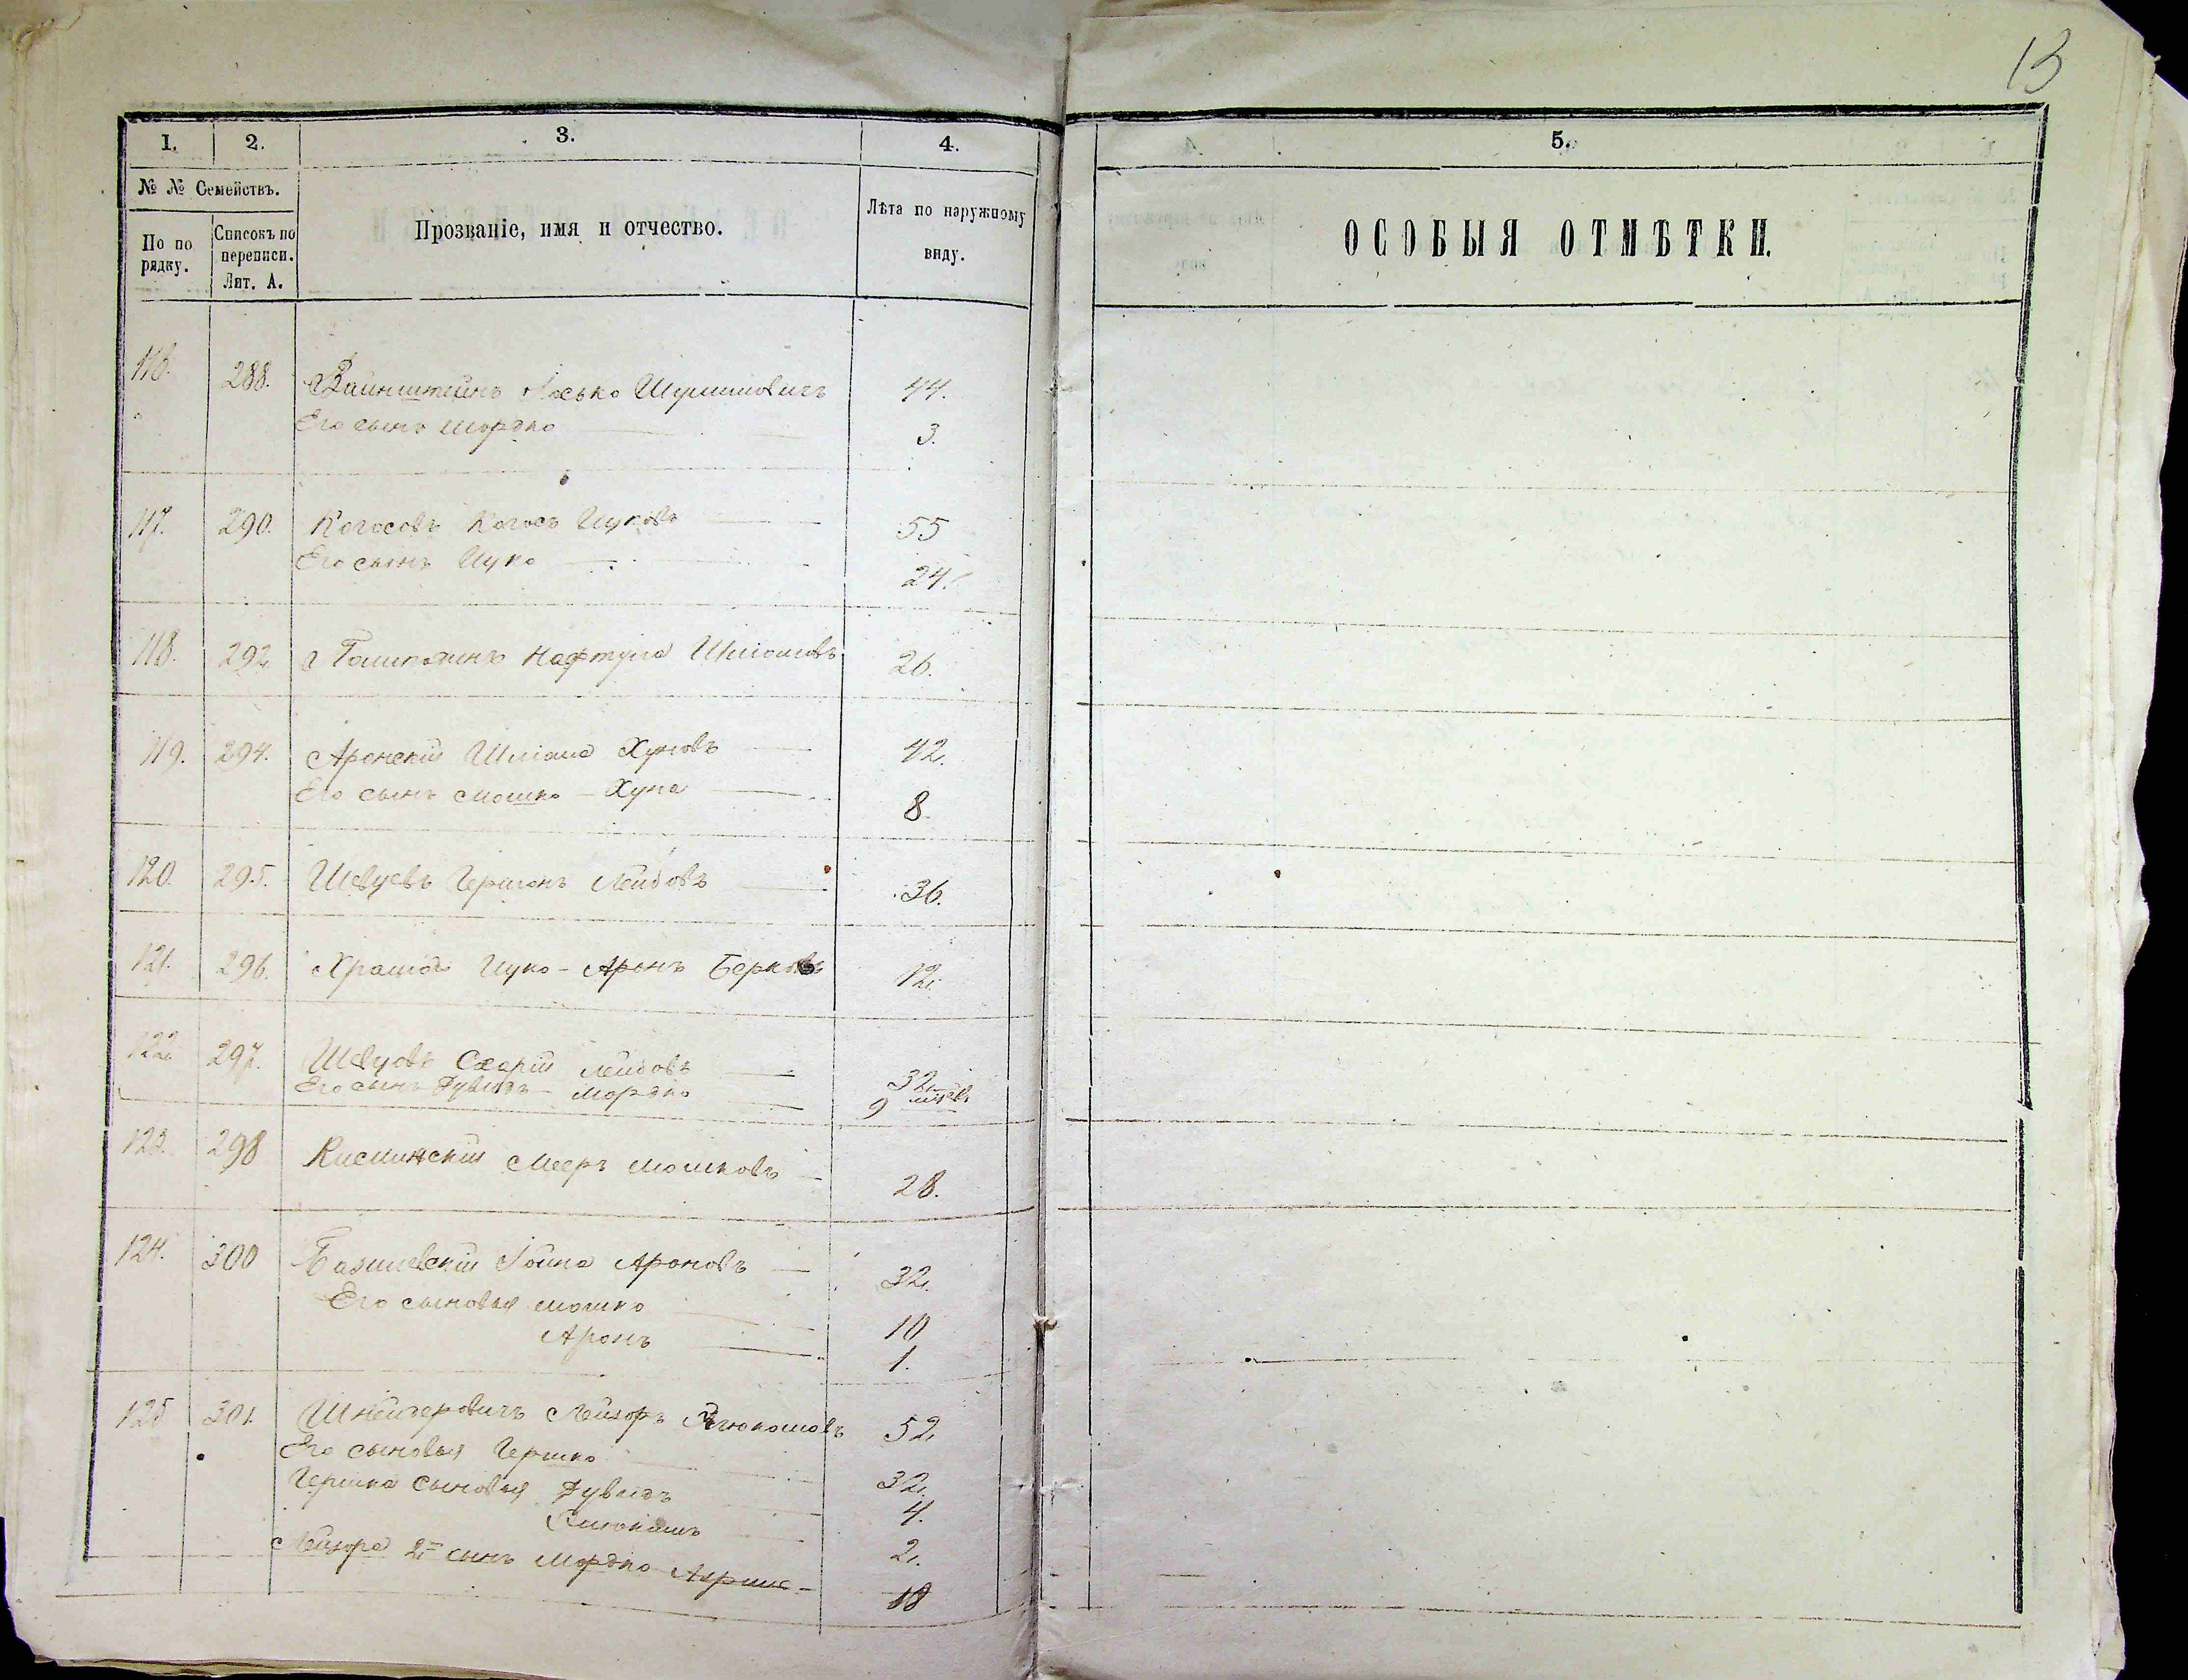 13
1. 2. 3. 4. 5.
№ № Семействъ.
По по рядку.
Списокъ по переписи. Лит. А.
Прозваніе, имя и отчество.
Лѣта по наружному виду.
ОСОБЫЯ ОТМѢТКИ.
116. 288. Вайнштейнъ Іосько 44.
Его сынъ Мордко 3.
117. 290. Когосовъ Когосъ Ицковъ 55
Его сынъ Ицко 24.
118. 292 Нафтула Шліомовъ 26.
119. 294. Аронскій Шліома Хуновъ 42.
Его сынъ Мошко - Хуна 8.
120. 295. Шевцевъ Гершонъ Лейбовъ 36.
121. 296. Ицко - Аронъ Берковъ 12.
122. 297. Шевцовъ Сахарій Лейбовъ 32.
Его сынъ Рувинъ - Мордко 9
123. 298 Мееръ Мошковъ 28.
124. 300 Базилевскій Іойна Ароновъ 32.
Его сыновья Мошко 10
Аронъ 1.
125 301. Шнейдеровичъ Лейзоръ 52.
Его сыновья Гершко 32.
Гершка сыновья 4.
2.
Лейзора 2й сынъ Мордко 18